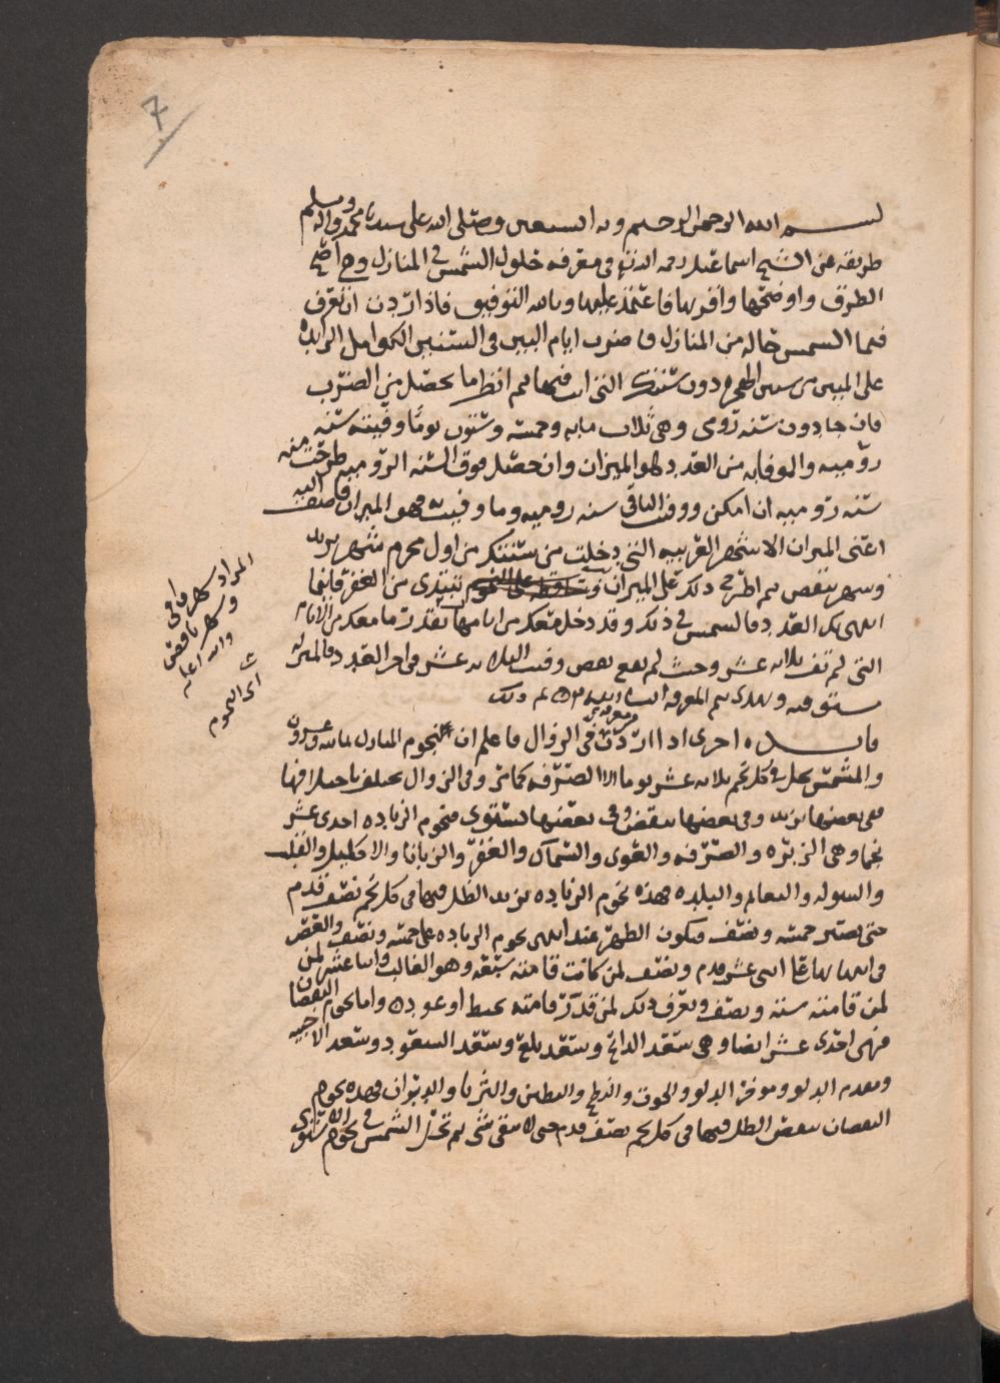 7
بسم الله الرحمن الرحيم وبه نستعين وصلى الله على سيدنا محمد واله وسلم
طريقه عن الشيخ اسماعيل رحمه الله في معرفه حلول الشمس في المنازل وهي اصح
الطرق واوضحها واقربها فاعتمد عليها وبالله التوفيق فاذا اردت ان تعرف
فيما الشمس حاله من المنازل فاضرب ايام البين في السنين الكوامل الزايده
على المبين من سنين الهجره دون سنتك التي انت فيها ثم انظر ما تحصل من الضرب
فان جا دون سنه رومى وهى ثلاث مايه وخمسه وستون يوما وفيته سنه
روميه والموفا به من العدد هو الميزان وان حصل فوق السنه الروميه طرحت منه
سنه روميه ان امكن ووفيت الباقي سنه روميه وما وفيت فهو الميزان فاضف اليه
اعنى الميزان الاشهر العربيه التي دخلت من سنتك من اول محرم شهر يزيد
وشهر ينقص ثم اطرح ذلك على الميزان تبتدى من الغفر فاينما
انتهى بك العدد فالشمس في ذلك وقد دخل معك من ايامها بقدر ما معك من الايام
التي لم تف ثلاثه عشر وحيث لم يقع نقص وفت الثلاثه عشر في اخر العدد فالمنزله
مستوفيه
فايده اخرى اذا اردت معرفه في الزوال فاعلم ان نجوم المنازل ثمانيه وعشرون
والشمس تحل في كل نجم ثلاثه عشر يوما الا الصرفه كما مر وفي الزوال تختلف باختلافها
ففي بعضها يزيد وفي بعضها ينقص وفي بعضها يستوى فنجوم الزياده احدى عشر
نجما وهى الزبره والصرفه والعوى والسماك والغفر والزبانا والاكليل والقلب
والشوله والنعايم والبلده فهذه نجوم الزياده يزيد الظل فيها في كل نجم نصف قدم
حتى يصير خمسه ونصف فيكون الظهر عند انتهى نجوم الزياده على خمسه ونصف والعصر
في انتهايها على اثنى عشر قدم ونصف لمن كانت قامته سبعه وهو الغالب واثنا عشر لمن
لمن قامته سته ونصف ويعرف ذلك لمن قدر قامته بخيط او عود واما نجوم النقصان
فهى احدى عشر ايضا وهى سعد الذابح وسعد بلع وسعد السعود وسعد الاخبيه
ومقدم الدلو وموخر الدلو والحوت والنطح والبطين والثريا والدبران فهذه نجوم
النقصان ينقص الظل فيها في كل نجم نصف قدم حتى لا يبقى شى ثم تحل الشمس في نجوم الاستوى
المراد شهر وافي
وشهر ناقص
والله اعلم
اى النجوم